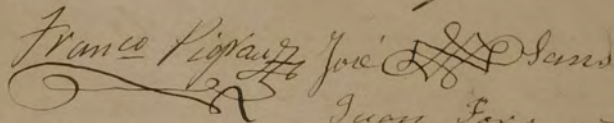 Franco Pigrau José Sans
Juan